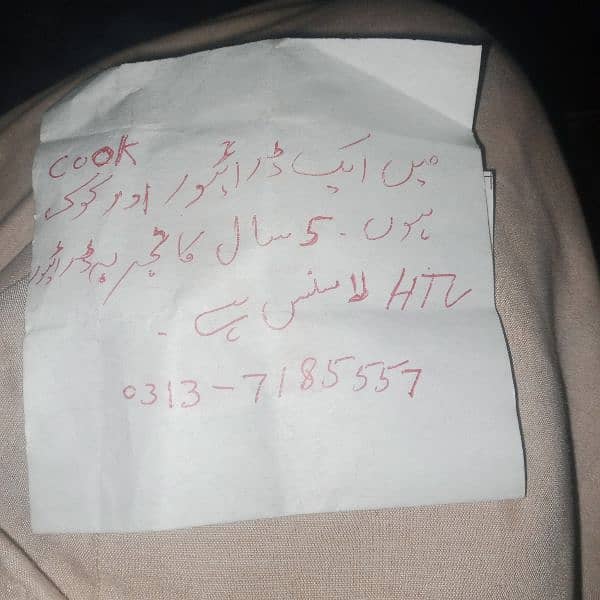 cook
میں ایک ڈرائیور اور کوک
ہوں۔ 5 سال کا تجربہ ڈرائیور
HTV لائسنس ہے۔
0313-7185557